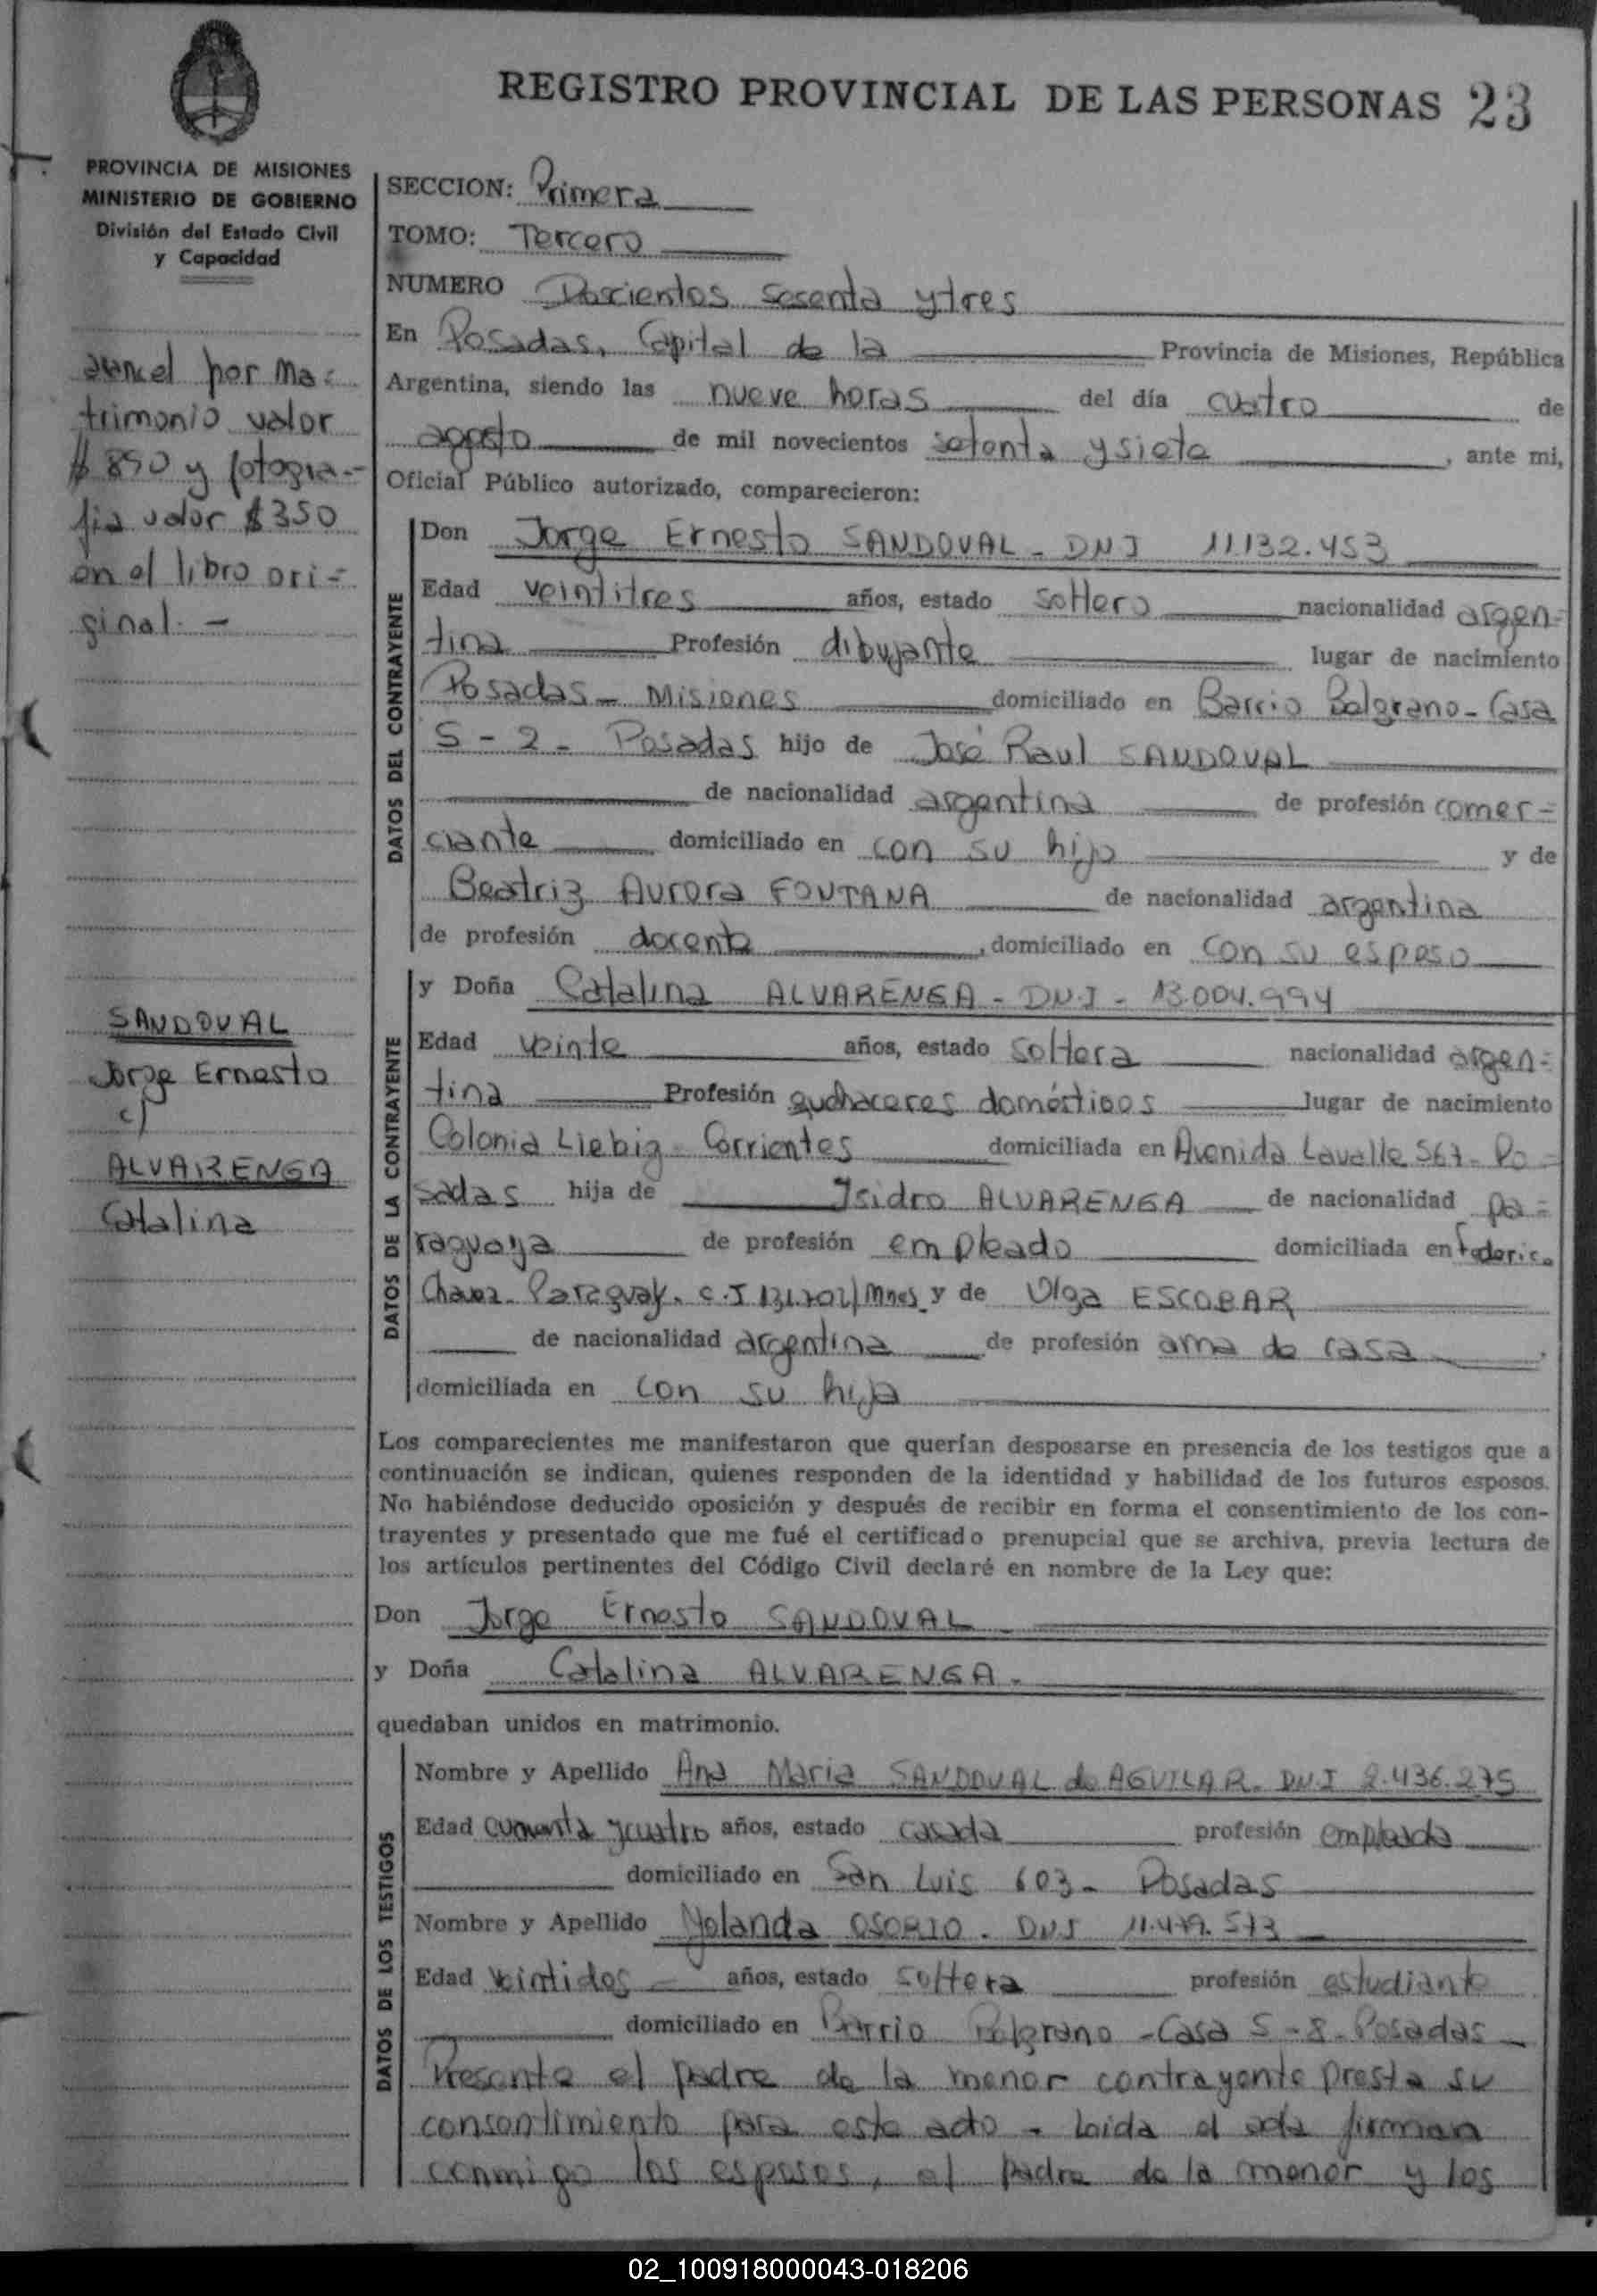 REGISTRO PROVINCIAL DE LAS PERSONAS 23
PROVINCIA DE MISIONES
MINISTERIO DE GOBIERNO
División del Estado Civil
y Capacidad
arancel por ma=
trimonio valor
$ 850 y fotogra=
fia valor $ 350
en el libro ori=
ginal. -
SANDOVAL
Jorge Ernesto
c/
ALVARENGA
Catalina
SECCION: Primera
TOMO: Tercero
NUMERO Doscientos sesenta y tres
En Posadas, Capital de la Provincia de Misiones, República
Argentina, siendo las nueve horas del día cuatro de
agosto de mil novecientos setenta y siete, ante mi,
Oficial Público autorizado, comparecieron:
DATOS DEL CONTRAYENTE
Don Jorge Ernesto SANDOVAL - DNI 11.132.453
Edad veintitres años, estado soltero nacionalidad argen=
tina Profesión dibujante lugar de nacimiento
Posadas - Misiones domiciliado en Barrio Belgrano - Casa
S - 2 - Posadas hijo de José Raul SANDOVAL
de nacionalidad argentina de profesión comer=
ciante domiciliado en con su hijo y de
Beatriz Aurora FONTANA de nacionalidad argentina
de profesión docente, domiciliado en con su esposo
DATOS DE LA CONTRAYENTE
y Doña Catalina ALVARENGA - DNI - 13.004.994
Edad veinte años, estado soltera nacionalidad argen=
tina Profesión quehaceres domésticos lugar de nacimiento
Colonia Liebig - Corrientes domiciliada en Avenida Lavalle 567 - Po=
sadas hija de Isidro ALVARENGA de nacionalidad pa=
raguaya de profesión empleado domiciliada en Federico
Chavez - Paraguay. C.I 131.702/Mnes y de Olga ESCOBAR
de nacionalidad argentina de profesión ama de casa
domiciliada en con su hija
Los comparecientes me manifestaron que querían desposarse en presencia de los testigos que a
continuación se indican, quienes responden de la identidad y habilidad de los futuros esposos.
No habiéndose deducido oposición y después de recibir en forma el consentimiento de los con-
trayentes y presentado que me fué el certificado prenupcial que se archiva, previa lectura de
los artículos pertinentes del Código Civil declaré en nombre de la Ley que:
Don Jorge Ernesto SANDOVAL
y Doña Catalina ALVARENGA -
quedaban unidos en matrimonio.
DATOS DE LOS TESTIGOS
Nombre y Apellido Ana Maria SANDOVAL de AGUILAR. DNI 2.436.275
Edad cuarenta y cuatro años, estado casada profesión empleada
domiciliado en San Luis 603 - Posadas
Nombre y Apellido Yolanda OSORIO - DNI 11.479.573
Edad veintidos - años, estado soltera profesión estudiante
domiciliado en Barrio Belgrano - Casa S - 8 - Posadas
Presente el padre de la menor contrayente presta su
consentimiento para este acto - Leida el acta firman
conmigo los esposos, el padre de la menor y los
02_100918000043-018206